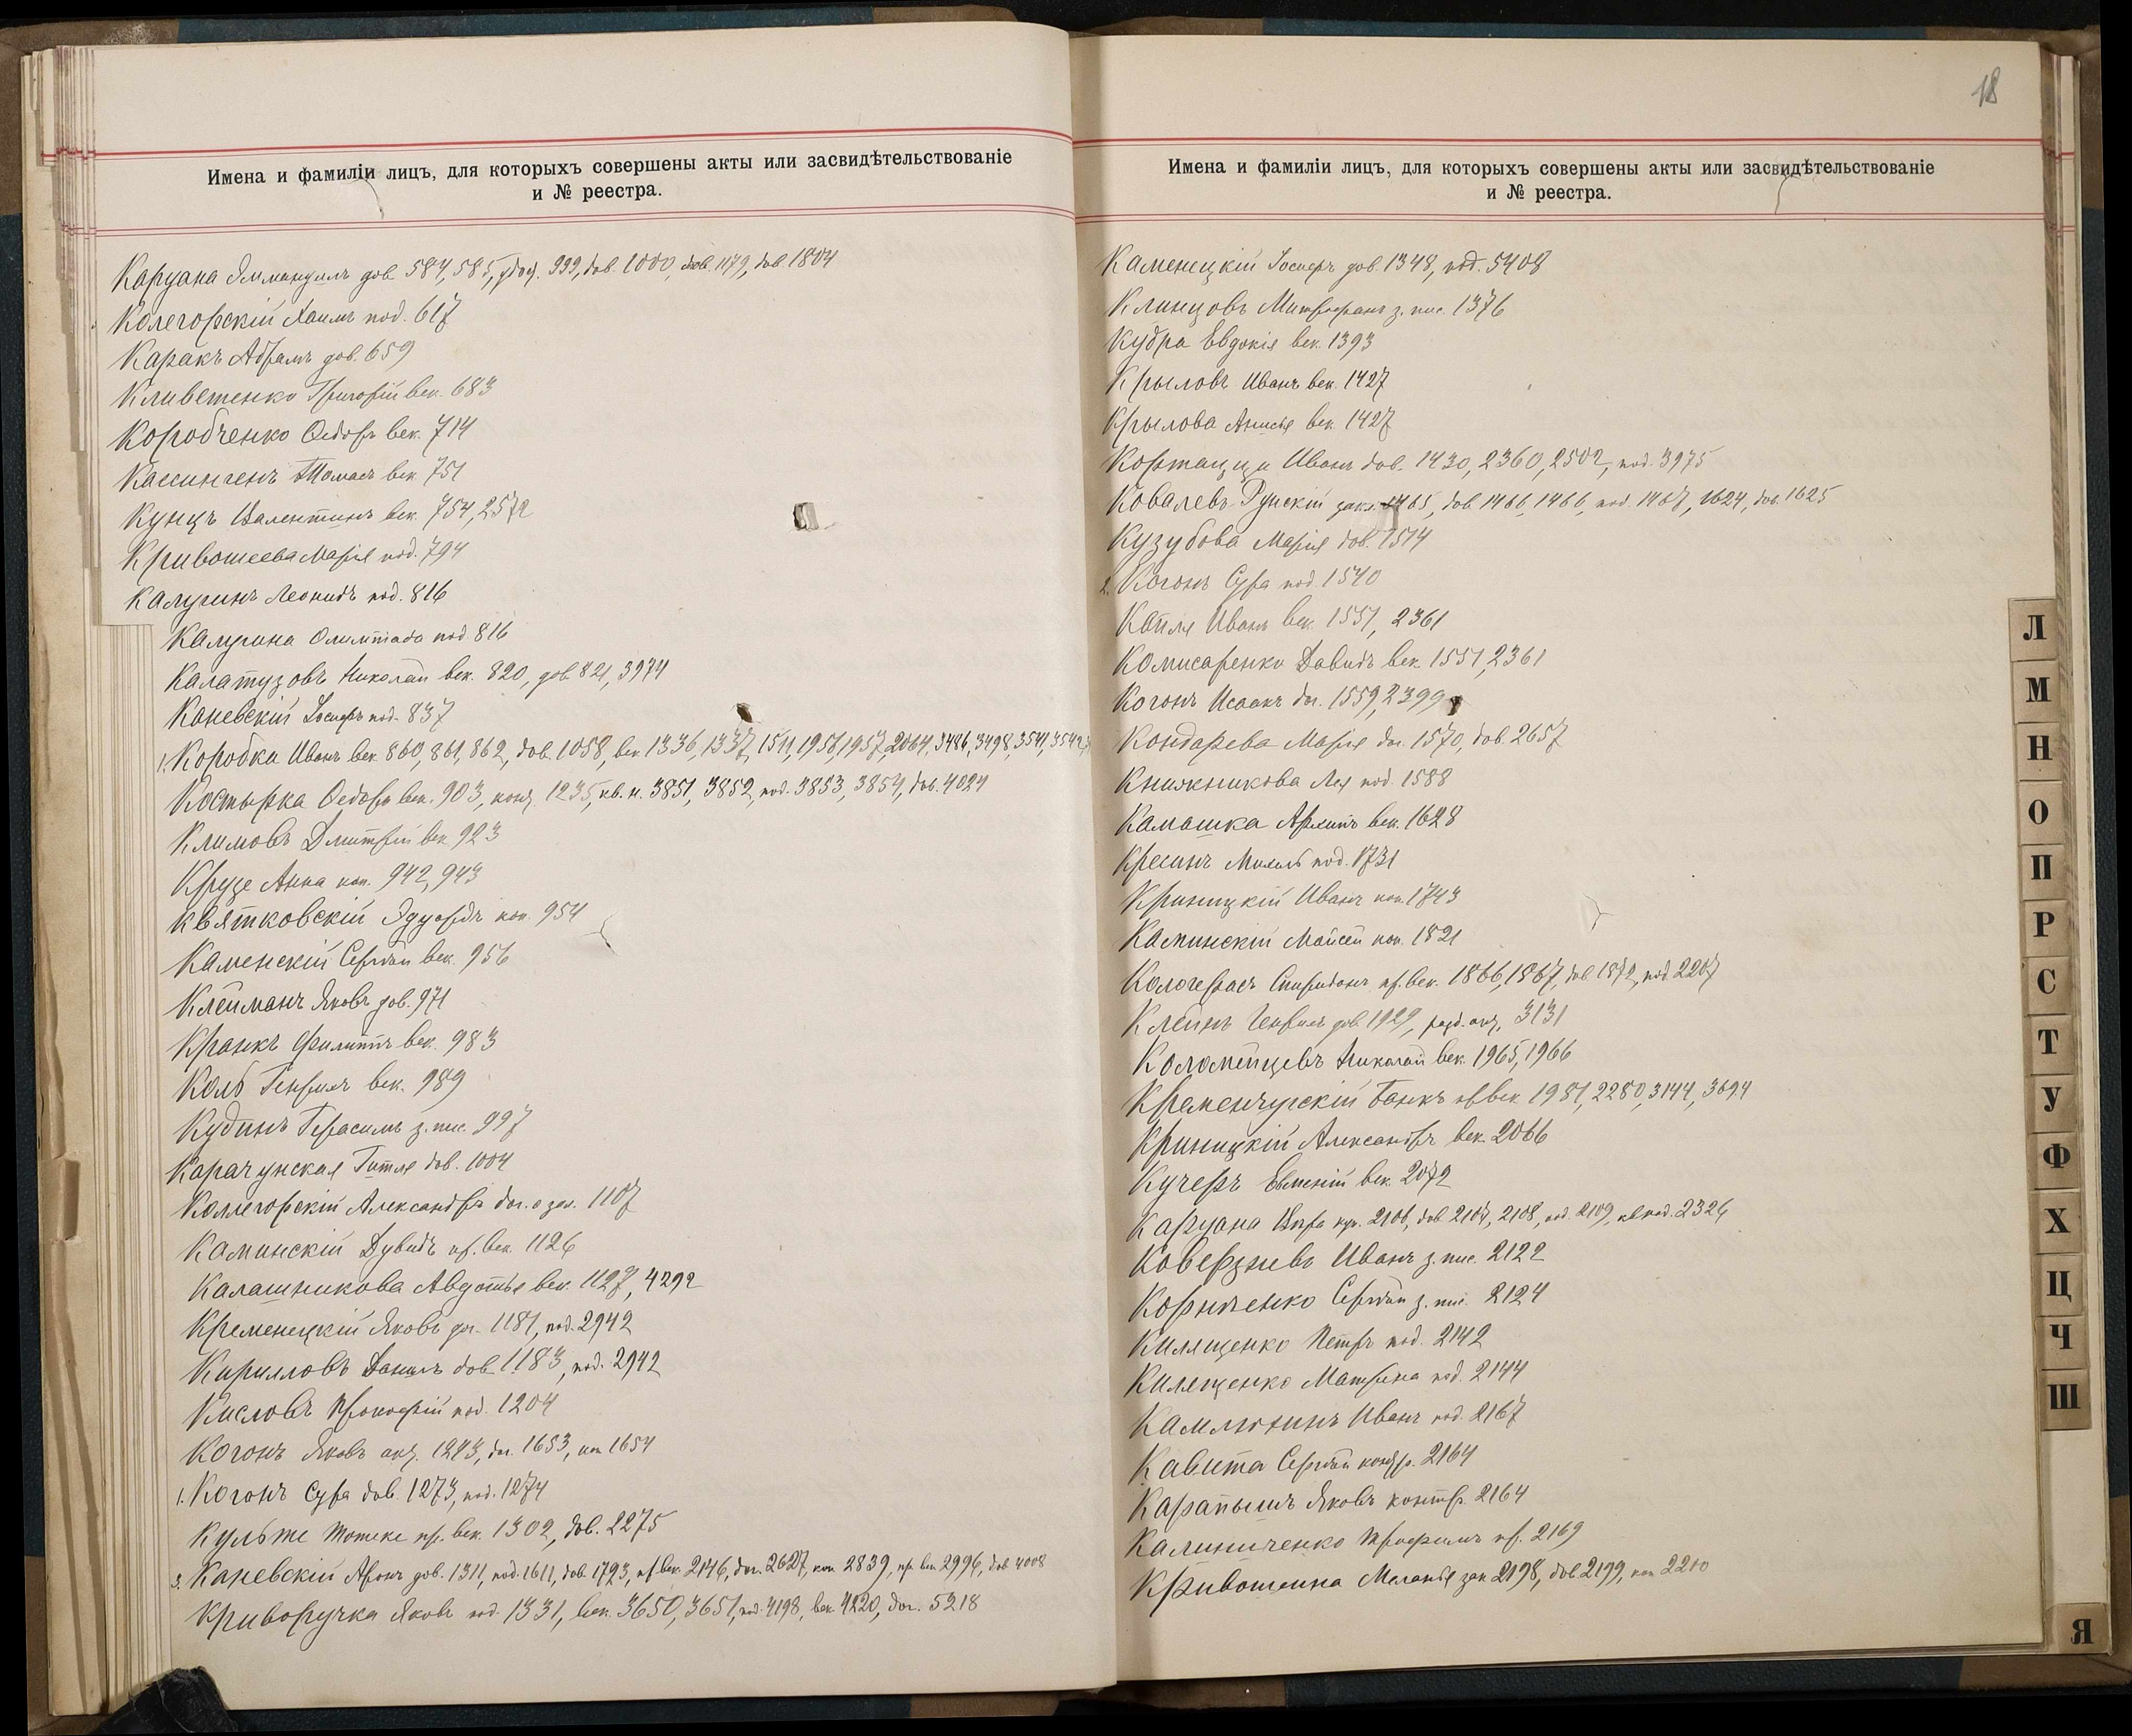 Имена и фамиліи лицъ, для которыхъ совершены акты или засвидѣтельствованіе
и № реестра.
Каруана Эммануилъ дов. 584, 585, удост. 999, дов. 1000, дов. 1179, дов. 1804
Колегорскій Хаимъ под. 617
Каракъ Абрамъ дов. 659
Кливетенко Григорій век. 683
Коробченко Ѳедоръ век. 714
Кассингенъ Томасъ век. 751
Кунцъ Валентинъ век. 754, 2572
Кривошеева Марія под. 794
Калугинъ Леонидъ под. 816
Калугина Олимпіада под 816
Калатузовъ Николай век. 820, дов. 821, 3974
Каневскій Іосифъ под. 837
1. Коробка Иванъ век. 860, 861, 862, дов. 1058, век. 1336, 1337, 1511, 1958, 1957, 2064, 3486, 3498, 3541, 3542,
Костырка Ѳедоръ век. 903, 1235, кв. н. 3851, 3852, под. 3853, 3854, дов. 4024
Климовъ Дмитрій век 923
Крузе Анна коп. 942, 943
Квятковскій Эдуардъ коп. 954
Каменскій Сергѣй век. 956
Клейманъ Яковъ дов. 971
Кранкъ Филиппъ век. 983
Коль Генрихъ век. 989
Кудинъ Герасимъ з. пис. 997
Карачунская Гитля дов. 1004
Коллегорскій Александръ дог. о зал. 1107
Каминскій Дувидъ пр. век. 1126
Калашникова Авдотья век. 1127, 4292
Кременецкій Яковъ дог. 1181, под. 2942
Кирилловъ Данилъ дов. 1183, под. 2942
Кисловъ Прокофій под. 1204
Когонъ Яковъ 1213, дог. 1653, коп 1654
1. Когонъ Сура дов. 1273, под. 1274
Культе пр. век. 1302, дов. 2275
3. Каневскій Аронъ дов. 1311, под. 1611, дов. 1793, пр. век. 2146, дог. 2627, коп. 2839, пр. век. 2996, дов. 4008
Криворучка Яковъ под. 1331, век. 3650, 3651, под. 4198, век. 4220, дог. 5218
18
Имена и фамиліи лицъ, для которыхъ совершены акты или засвидѣтельствованіе
и № реестра.
Каменецкій Іосифъ дов. 1348, под. 5408
Клинцовъ Митрофанъ з. пис. 1376
Кудра Евдокія век. 1393
Крыловъ Иванъ век. 1427
Крылова Анисья век. 1427
Кортацци Иванъ дов. 1430, 2360, 2502, под. 3975
Ковалевъ-Рунскій 1465, дов. 1466, 1466, под. 1467, 1624, дов. 1625
Кузубова Марія дов. 1514
2. Когонъ Сура под. 1540
Капля Иванъ век. 1551, 2361
Комисаренко Давидъ век. 1551, 2361
Когонъ Исаакъ дог. 1559, 2399
Кондарева Марія дог. 1570, дов. 2657
Книжникова Лея под. 1588
Камашка Архипъ век. 1628
Кресинъ Михель под. 1731
Криницкій Иванъ коп. 1743
Каминскій Мойсей коп. 1821
Кологерасъ Спиридонъ пр. век. 1866, 1867, дов. 1872, под. 2207
Клейнъ Генрихъ дов. 1929, 3131
Коломейцевъ Николай век. 1965, 1966
Кременчугскій Банкъ пр. век. 1981, 2280, 3144, 3694
Криницкій Александръ век. 2066
Кучеръ Евменій век. 2072
Каруана Вѣра куп. 2106, дов. 2107, 2108, под. 2109, 2326
Коверзневъ Иванъ з. пис. 2122
Корниенко Сергѣй з. пис. 2124
Килященко Петръ под. 2142
Килященко Матрена под. 2144
Камлюхинъ Иванъ под. 2167
Кавита Сергѣй контр. 2164
Карапышъ Яковъ контр. 2164
Калиниченко Трофимъ пр. 2169
Кривошеина Меланья зак 2198, дов. 2199, коп 2210
Л
М
Н
О
П
Р
С
Т
У
Ф
Х
Ц
Ч
Ш
Я